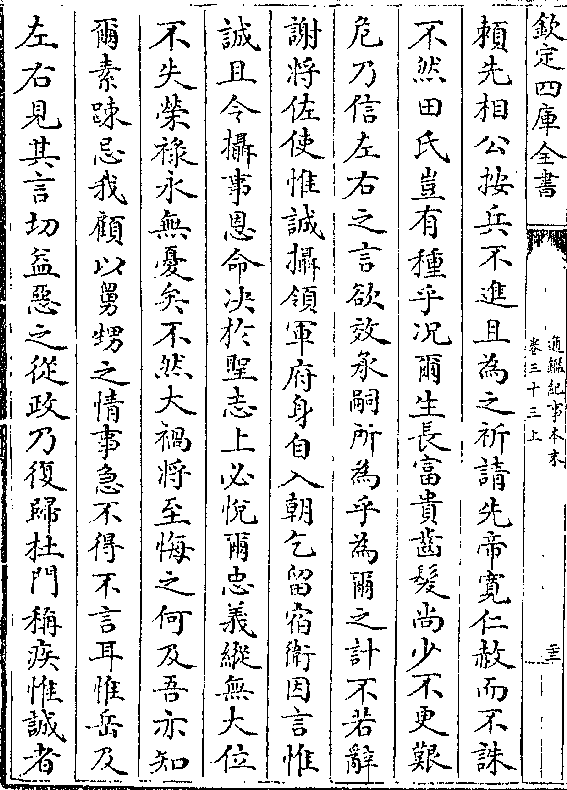 欽定四庫全書
通鑑紀事本末
卷三十三上
賴先相公按兵不進且為之祈請先帝寛仁赦而不誅
不然田氏豈有種乎况爾生長富貴齒髮尚少不更艱
危乃信左右之言欲效承嗣所為乎為爾之計不若辭
謝將佐使惟誠攝領軍府身自入朝乞留宿衛因言惟
誠且令攝事恩命决於聖志上必悅爾忠義縱無大位
不失榮禄永無憂矣不然大禍將至悔之何及吾亦知
爾素踈忌我顧以舅甥之情事急不得不言耳惟岳及
左右見其言切益惡之從政乃復歸杜門稱疾惟誠者